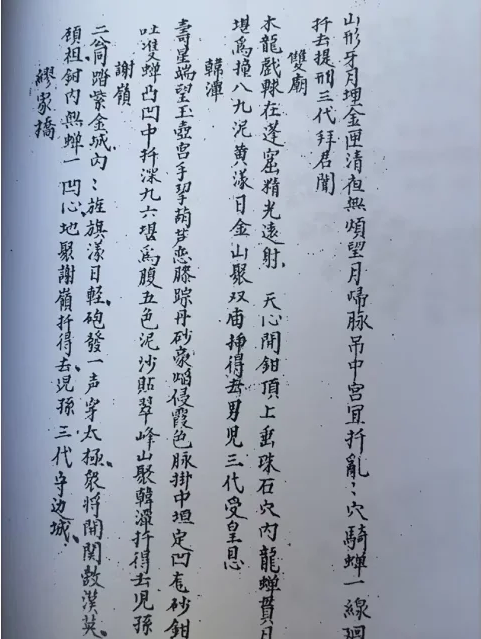 山形牙月埋金匣清夜無煩望月啼脉吊中宮冝扦亂；穴騎蟬一線迴
扦去提刑三代拜君聞
雙廟
木龍戲棘在蓬窟精光遠射．天心開鉗頂上垂珠石穴內龍蟬貫月
堪爲撞八九泥黄漾日金山聚双庙扦得去男児三代受皇恩
韓潭
壽星端望玉壺宫手挐葫芦恋膝踪丹砂象焰侵霞色脉掛中垣定凹崽砂鉗
吐隻蟬凸凹中扦深九六堪爲腹五色泥沙贴翠峰山聚韓潭扦得去児孫
謝嶺
二公同踏紫金城内：旌旗漾日輕砲發一声穿太極衆將開関数漢英
頏祖鉗内無蟬一凹心地聚謝嶺扦得去児孫三代守边城
繆家橋